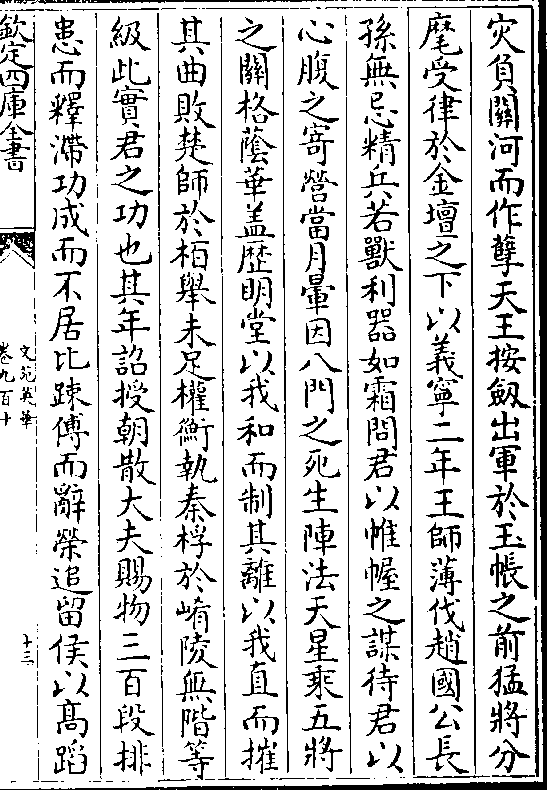 灾負關河而作孽天王按劔出軍於玉帳之前猛將分
麾受律於金壇之下以義寧二年王師薄伐趙國公長
孫無忌精兵若獸利器如霜問君以帷幄之謀待君以
心腹之寄營當月暈因八門之死生陣法天星乘五將
之關格蔭華盖歴明堂以我和而制其離以我直而摧
其曲敗楚師於栢舉未足權衡執秦桴於崤陵無階等
級此實君之功也其年詔授朝散大夫賜物三百段排
患而釋滯功成而不居比踈傅而辭榮追留侯以髙蹈
欽定四庫全書
文苑英華
卷九百十
十三